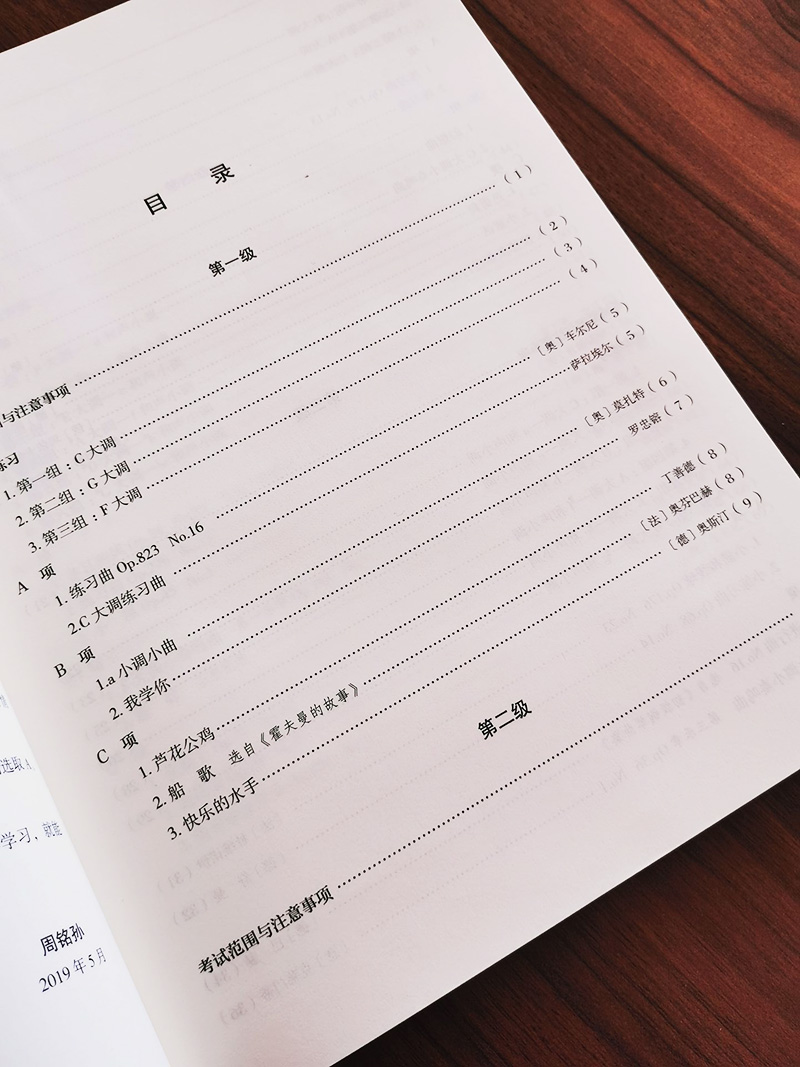 目 录
第一级
与注意事项 ………… (1)
练习
1. 第一组:C 大调 ………… (2)
2. 第二组:G 大调 ………… (3)
3. 第三组:F 大调 ………… (4)
A 项
1. 练习曲 Op.823 No.16 ………… 〔奥〕车尔尼 (5)
2.C 大调练习曲 ………… 萨拉埃尔 (5)
B 项
1.a 小调小曲 ………… 〔奥〕莫扎特 (6)
2. 我学你 ………… 罗忠镕 (7)
C 项
1. 芦花公鸡 ………… 丁善德 (8)
2. 船 歌 选自《霍夫曼的故事》 ………… 〔法〕奥芬巴赫 (8)
3. 快乐的水手 ………… 〔德〕奥斯汀 (9)
第二级
考试范围与注意事项 …………
选取 A
学习,就能
周铭孙
2019 年 5 月